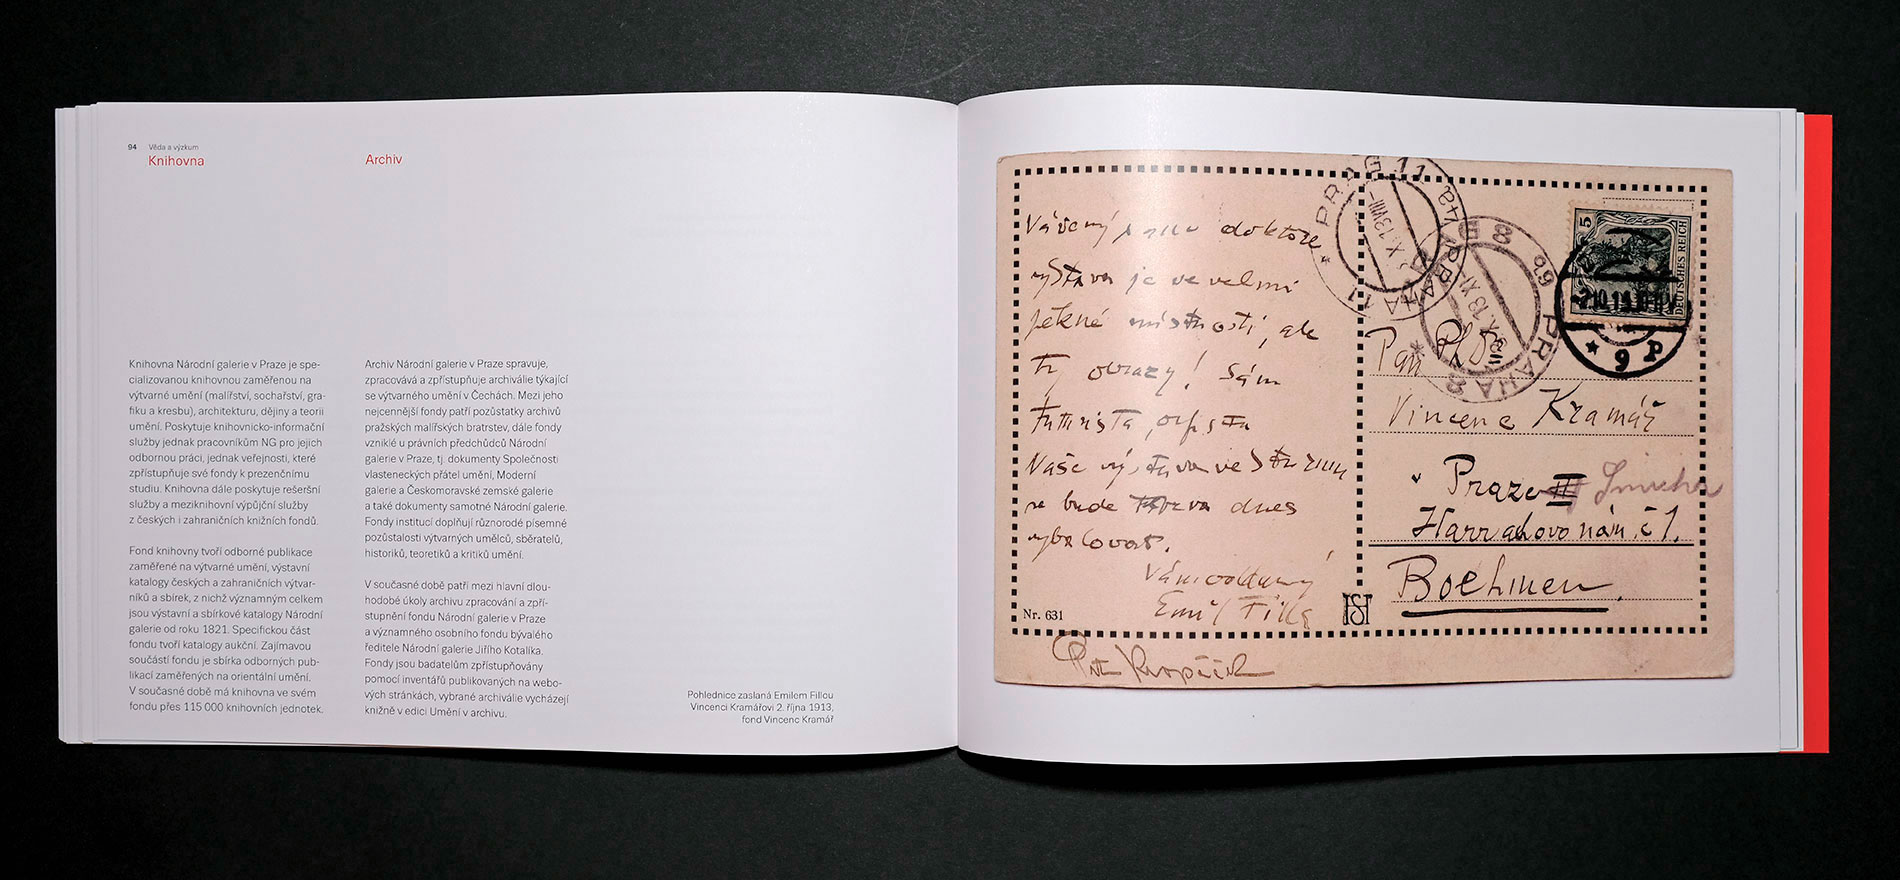 94
Věda a výzkum
Knihovna
Archiv
Knihovna Národní galerie v Praze je spe-
cializovanou knihovnou zaměřenou na
výtvarné umění (malířství, sochařství, gra-
fiku a kresbu), architekturu, dějiny a teorii
umění. Poskytuje knihovnicko-informační
služby jednak pracovníkům NG pro jejich
odbornou práci, jednak veřejnosti, které
zpřístupňuje své fondy k prezenčnímu
studiu. Knihovna dále poskytuje rešeršní
služby a meziknihovní výpůjční služby
z českých i zahraničních knižních fondů.
Fond knihovny tvoří odborné publikace
zaměřené na výtvarné umění, výstavní
katalogy českých a zahraničních výtvar-
níků a sbírek, z nichž významným celkem
jsou výstavní a sbírkové katalogy Národní
galerie od roku 1821. Specifickou část
fondu tvoří katalogy aukční. Zajímavou
součástí fondu je sbírka odborných pub-
likací zaměřených na orientální umění.
V současné době má knihovna ve svém
fondu přes 115 000 knihovních jednotek.
Archiv Národní galerie v Praze spravuje,
zpracovává a zpřístupňuje archiválie týkající
se výtvarného umění v Čechách. Mezi jeho
nejcennější fondy patří pozůstatky archivů
pražských malířských bratrstev, dále fondy
vzniklé u právních předchůdců Národní
galerie v Praze, tj. dokumenty Společnosti
vlasteneckých přátel umění, Moderní
galerie a Českomoravské zemské galerie
a také dokumenty samotné Národní galerie.
Fondy institucí doplňují různorodé písemné
pozůstalosti výtvarných umělců, sběratelů,
historiků, teoretiků a kritiků umění.
V současné době patří mezi hlavní dlou-
hodobé úkoly archivu zpracování a zpří-
stupnění fondu Národní galerie v Praze
a významného osobního fondu bývalého
ředitele Národní galerie Jiřího Kotalíka.
Fondy jsou badatelům zpřístupňovány
pomocí inventářů publikovaných na webo-
vých stránkách, vybrané archiválie vycházejí
knižně v edici Umění v archivu.
Pohlednice zaslaná Emilem Fillou
Vincenci Kramářovi 2. října 1913,
fond Vincenc Kramář
Vážený pane doktore
výstava je ve velmi
pěkné místnosti, ale
ty obrazy! Sám
futurista
Naše výstava ve
se bude dnes
Emil Filla
Nr. 631
PRAG 11
PRAHA 11
8
PRAHA 8
5
DEUTSCHES REICH
9 P
Pan PhDr
Vincenc Kramář
v Praze III Smíchov
Harrachovo nám. č 1.
Boehmen.